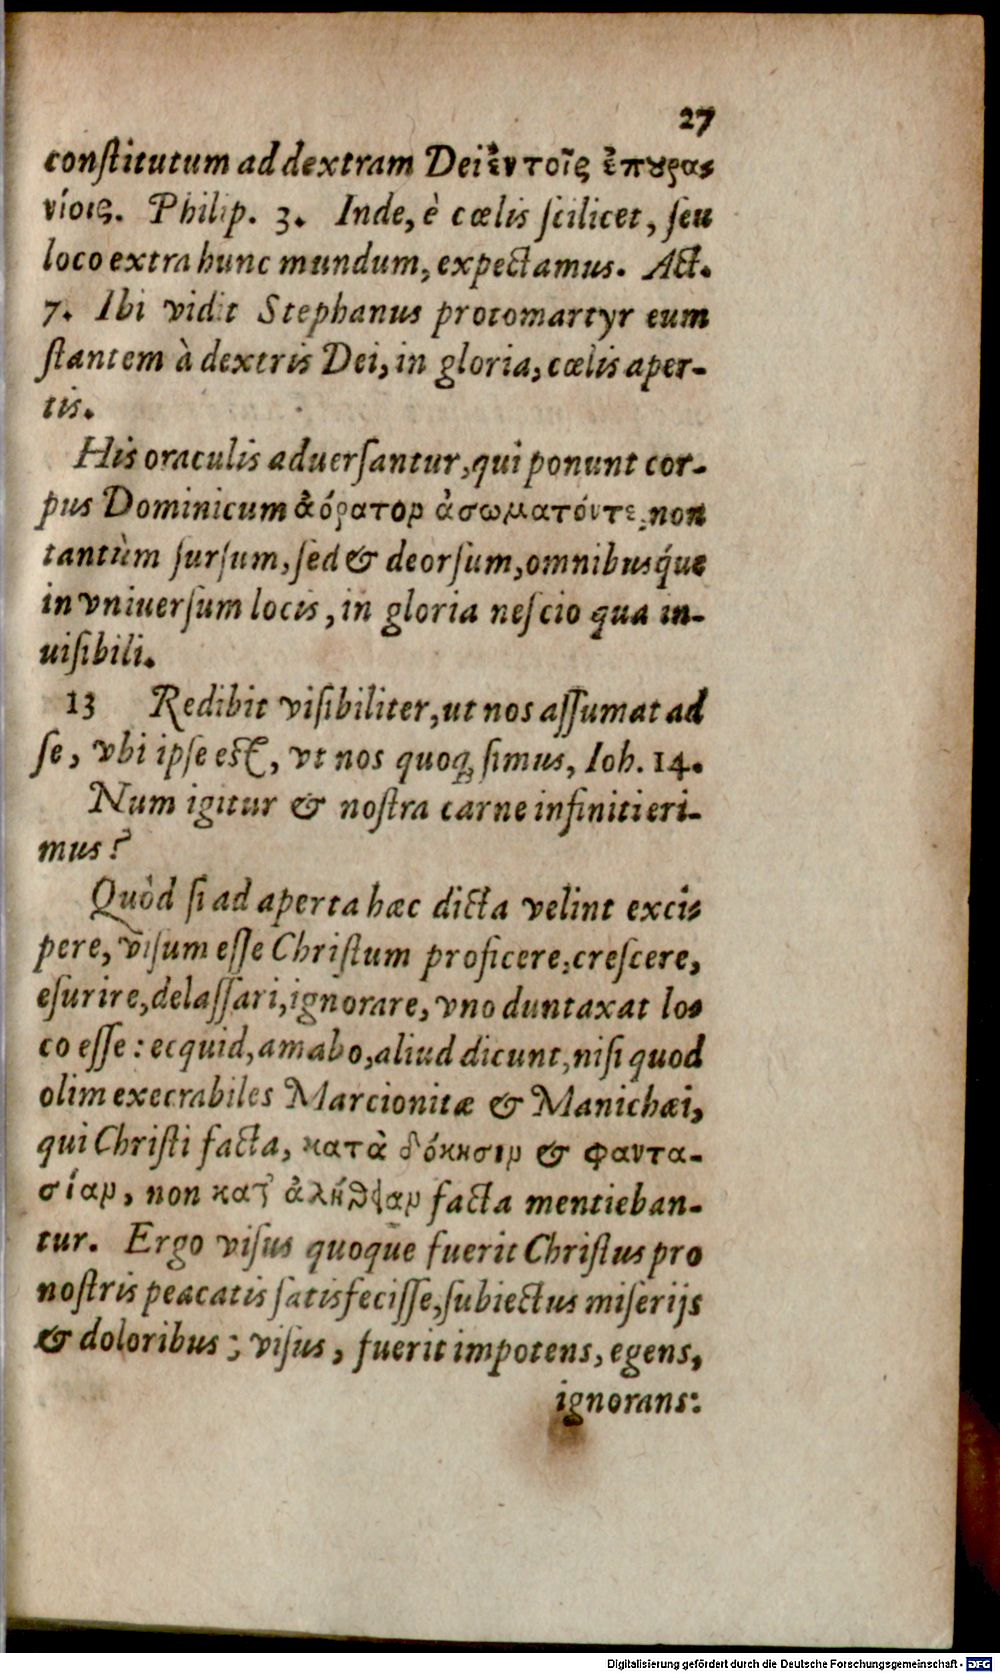 27
constitutum ad dextram Dei ἐν τοῖς ἐπουρα-
νίοις. Philip. 3. Inde, è cœlis scilicet, seu
loco extra hunc mundum, expectamus. Act.
7. Ibi vidit Stephanus protomartyr eum
stantem à dextris Dei, in gloria, cœlis aper-
tis.
His oraculis aduersantur, qui ponunt cor-
pus Dominicum ἀόρατον ἀσωματόντε, non
tantùm sursum, sed & deorsum, omnibusq́ue
in vniuersum locis, in gloria nescio qua in-
uisibili.
13 Redibit visibiliter, ut nos assumat ad
se, vbi ipse est, vt nos quoq; simus, Ioh. 14.
Num igitur & nostra carne infiniti eri-
mus?
Quòd si ad aperta hæc dicta velint exci-
pere, visum esse Christum proficere, crescere,
esurire, delassari, ignorare, vno duntaxat lo-
co esse: ecquid, amabo, aliud dicunt, nisi quod
olim execrabiles Marcionitæ & Manichæi,
qui Christi facta, κατὰ δόκησιν & φαντα-
σίαν, non κατ' ἀλήθειαν facta mentieban-
tur. Ergo visus quoque fuerit Christus pro
nostris peacatis satisfecisse, subiectus miserijs
& doloribus; visus, fuerit impotens, egens,
ignorans:
Digitalisierung gefördert durch die Deutsche Forschungsgemeinschaft - DFG